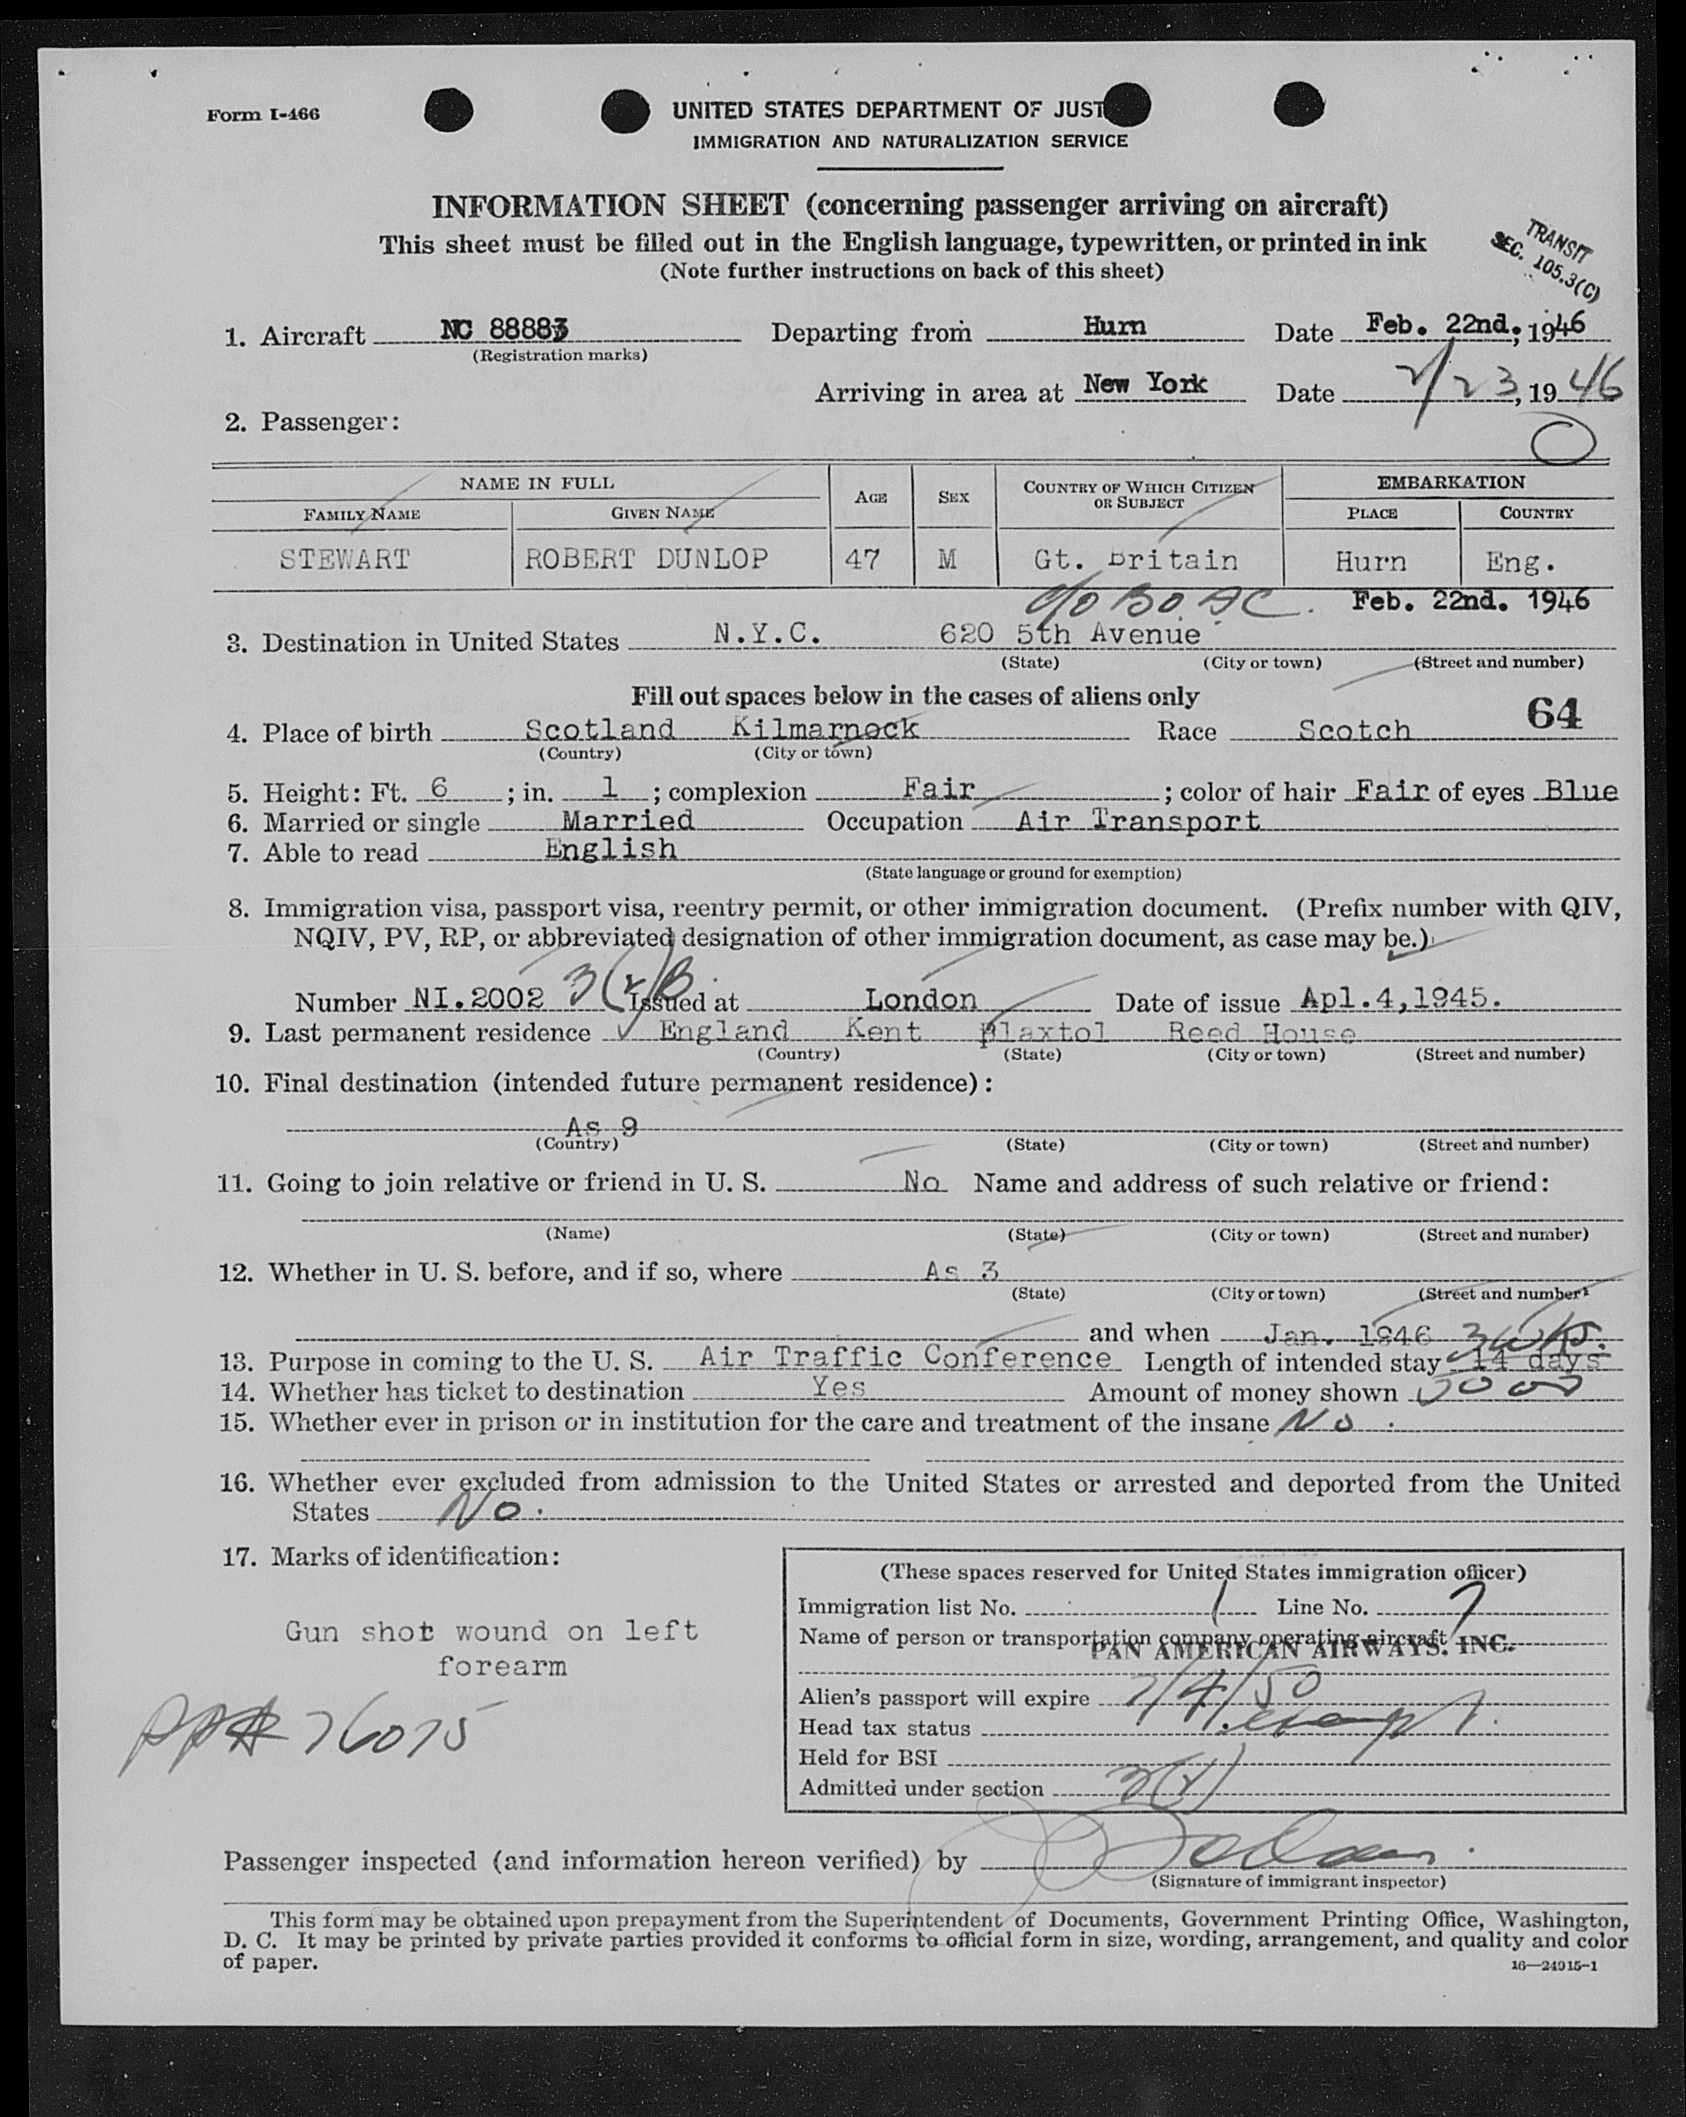 Form I-466
UNITED STATES DEPARTMENT OF JUST
IMMIGRATION AND NATURALIZATION SERVICE
INFORMATION SHEET (concerning passenger arriving on aircraft)
This sheet must be filled out in the English language, typewritten, or printed in ink
(Note further instructions on back of this sheet)
TRANSIT
SEC. 105.3(C)
1. Aircraft NC 88883 Departing from Hurn Date Feb. 22nd, 1946
(Registration marks)
Arriving in area at New York Date 2/23, 1946
2. Passenger:
NAME IN FULL AGE SEX COUNTRY OF WHICH CITIZEN OR SUBJECT EMBARKATION
FAMILY NAME GIVEN NAME PLACE COUNTRY
STEWART ROBERT DUNLOP 47 M Gt. Britain Hurn Eng.
c/o B.O.A.C. Feb. 22nd. 1946
3. Destination in United States N.Y.C. 620 5th Avenue
(State) (City or town) (Street and number)
Fill out spaces below in the cases of aliens only
64
4. Place of birth Scotland Kilmarnock Race Scotch
(Country) (City or town)
5. Height: Ft. 6; in. 1; complexion Fair; color of hair Fair of eyes Blue
6. Married or single Married Occupation Air Transport
7. Able to read English
(State language or ground for exemption)
8. Immigration visa, passport visa, reentry permit, or other immigration document. (Prefix number with QIV,
NQIV, PV, RP, or abbreviated designation of other immigration document, as case may be.)
Number NI.2002 3(2)B Issued at London Date of issue Apl.4,1945.
9. Last permanent residence England Kent Plaxtol Reed House
(Country) (State) (City or town) (Street and number)
10. Final destination (intended future permanent residence):
As 9
(Country) (State) (City or town) (Street and number)
11. Going to join relative or friend in U. S. No Name and address of such relative or friend:
(Name) (State) (City or town) (Street and number)
12. Whether in U. S. before, and if so, where As 3
(State) (City or town) (Street and number)
and when Jan. 1946
13. Purpose in coming to the U. S. Air Traffic Conference Length of intended stay 14 days
14. Whether has ticket to destination Yes Amount of money shown
15. Whether ever in prison or in institution for the care and treatment of the insane No.
16. Whether ever excluded from admission to the United States or arrested and deported from the United
States No.
17. Marks of identification:
Gun shot wound on left
forearm
PP# 76075
(These spaces reserved for United States immigration officer)
Immigration list No. 1 Line No. 7
Name of person or transportation company operating aircraft PAN AMERICAN AIRWAYS, INC.
Alien's passport will expire 7/4/50
Head tax status exempt.
Held for BSI
Admitted under section 3(2)
Passenger inspected (and information hereon verified) by
(Signature of immigrant inspector)
This form may be obtained upon prepayment from the Superintendent of Documents, Government Printing Office, Washington,
D. C. It may be printed by private parties provided it conforms to official form in size, wording, arrangement, and quality and color
of paper.
16—24915-1